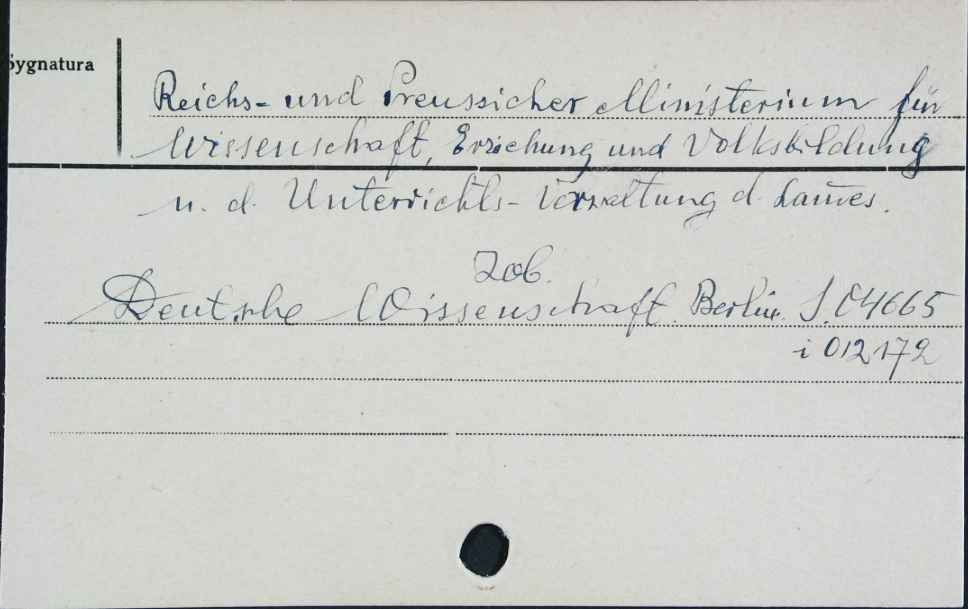 Sygnatura
Reichs- und Preussicher Ministerium für
Wissenschaft, Erziehung und Volksbildung
u. d. Unterrichts-Verwaltung d. Laūes.
Zob.
Deutsche Wissenschaft. Berlin. S. 04665
i 012172